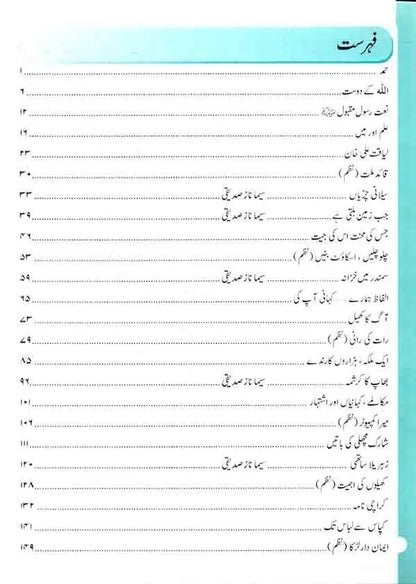 فہرست
حمد ۱
اللہ کے دوست ۶
نعت رسول مقبول ﷺ ۱۲
علم اور میں ۱۶
لیاقت علی خان ۲۳
قائد ملت (نظم) ۳۰
سیلانی چڑیاں سیما ناز صدیقی ۳۳
جب زمین ہلتی ہے سیما ناز صدیقی ۳۹
جس کی محنت اس کی جیت ۴۶
چلو چلیں ، اسکاؤٹ بنیں (نظم) ۵۳
سمندر میں خزانہ سیما ناز صدیقی ۵۹
الفاظ ہمارے کہانی آپ کی ۶۵
آگ کا کھیل ۷۳
رات کی رانی (نظم) ۷۹
ایک ملکہ ، ہزاروں کارندے ۸۵
بھاپ کا کرشمہ سیما ناز صدیقی ۹۶
مکالمے ، کہانیاں اور اشتہار ۱۰۱
میرا کمپیوٹر (نظم) ۱۰۶
شارک مچھلی کی باتیں ۱۱۱
زہریلا ساتھی سیما ناز صدیقی ۱۲۰
کھیلوں کی اہمیت (نظم) ۱۲۸
کراچی نامہ ۱۳۲
کپاس سے لباس تک ۱۴۱
ایمان دار لڑکا (نظم) ۱۴۹